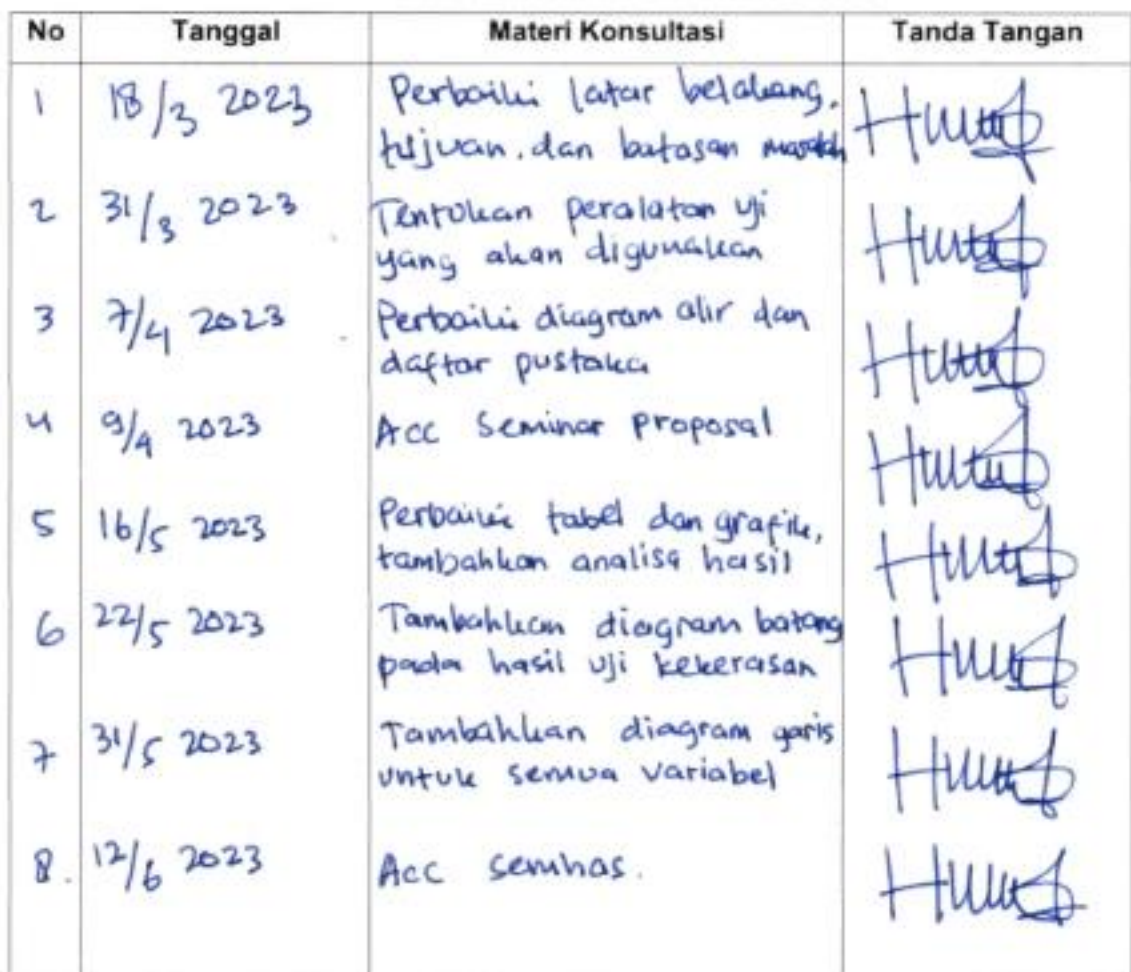 No Tanggal Materi Konsultasi Tanda Tangan
1 18/3 2023 Perbaiki latar belakang,
tujuan, dan batasan masalah
2 31/3 2023 Tentukan peralatan uji
yang akan digunakan
3 7/4 2023 Perbaiki diagram alir dan
daftar pustaka
4 9/4 2023 Acc Seminar Proposal
5 16/5 2023 Perbaiki tabel dan grafik,
tambahkan analisa hasil
6 22/5 2023 Tambahkan diagram batang
pada hasil uji kekerasan
7 31/5 2023 Tambahkan diagram garis
untuk semua variabel
8. 12/6 2023 Acc semhas.